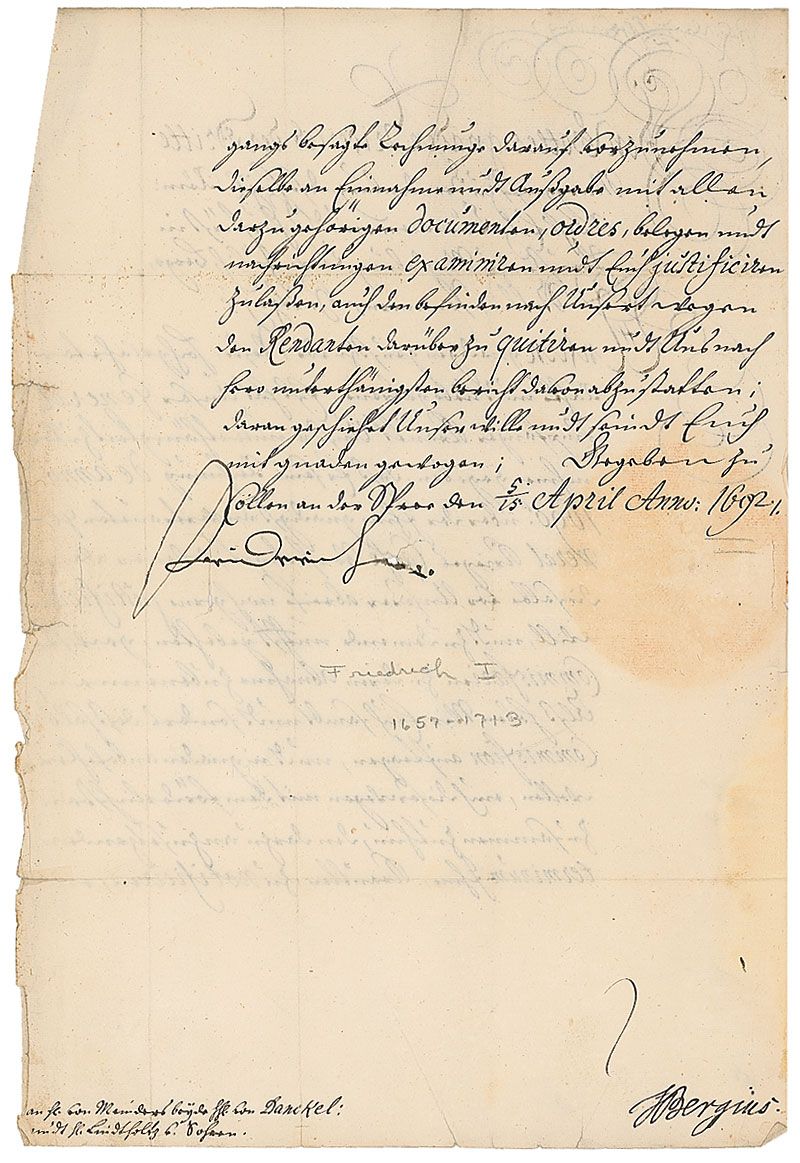 gangs besagte Rechnunge darauf vorzunehmen,
dieselbe an Einnahme undt Außgabe mit allen
darzu gehörigen documenten, ordres, belegen undt
nachrichtungen examiniren undt Euch justificiren
zulaßen, auch den befinden nach Unsert wegen
den Rendanten darüber zu quitiren undt Uns nach
hero unterthänigsten bericht davon abzustatten;
daran geschiehet Unser wille undt seindt Euch
mit gnaden gewogen; Gegeben zu
Cöllen an der Spree den 5/15 April Anno: 1692.
Friderich
Friedrich I
1657-1713
an H. von Meinders beyde HH. von Danckel:
undt H. Lindtholtz
HBergius.